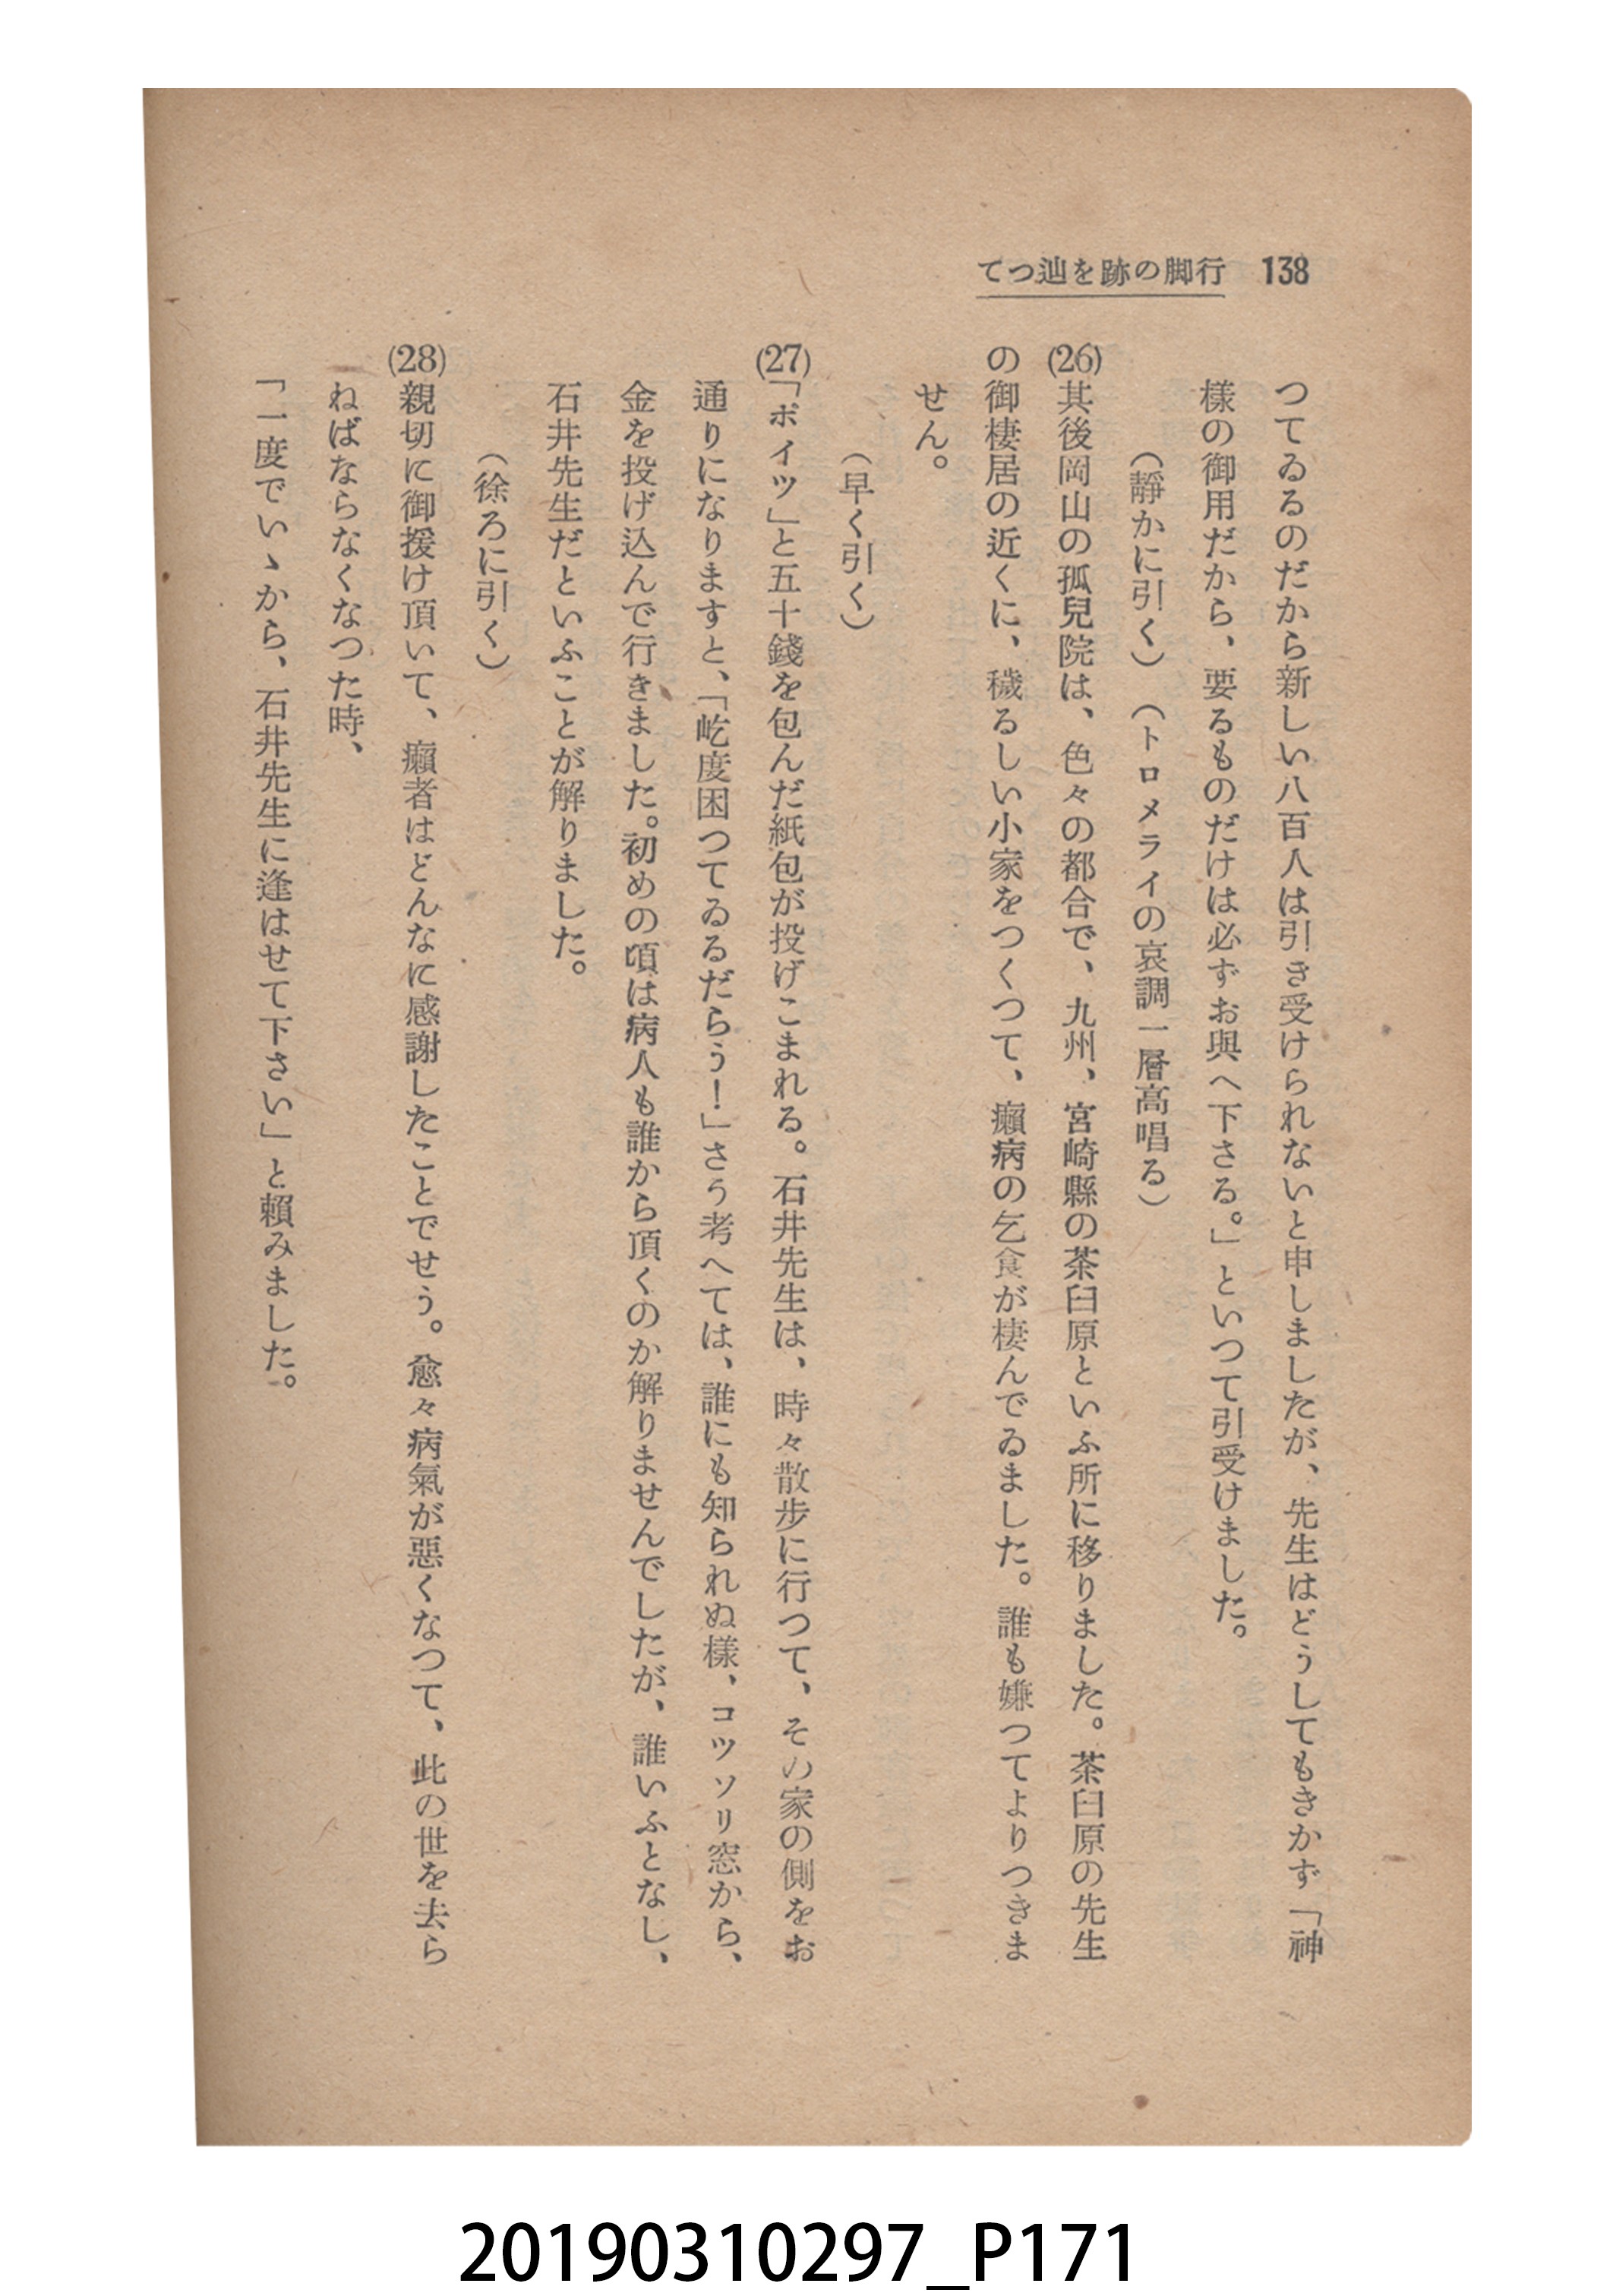 138 てつ辿を跡の脚行
つてゐるのだから新しい八百人は引き受けられないと申しましたが、先生はどうしてもきかず「神
樣の御用だから、要るものだけは必ずお與へ下さる。」といつて引受けました。
（靜かに引く）（トロメライの哀調一層高唱る）
(26)其後岡山の孤兒院は、色々の都合で、九州、宮崎縣の茶臼原といふ所に移りました。茶臼原の先生
の御棲居の近くに、穢るしい小家をつくつて、癩病の乞食が棲んでゐました。誰も嫌つてよりつきま
せん。
（早く引く）
(27)「ポイツ」と五十錢を包んだ紙包が投げこまれる。石井先生は、時々散步に行つて、その家の側をお
通りになりますと、「屹度困つてゐるだらう！」さう考へては、誰にも知られぬ樣、コツソリ窓から、
金を投げ込んで行きました。初めの頃は病人も誰から頂くのか解りませんでしたが、誰いふとなし、
石井先生だといふことが解りました。
（徐ろに引く）
(28)親切に御援け頂いて、癩者はどんなに感謝したことでせう。愈々病氣が惡くなつて、此の世を去ら
ねばならなくなつた時、
「一度でいゝから、石井先生に逢はせて下さい」と賴みました。
20190310297_P171